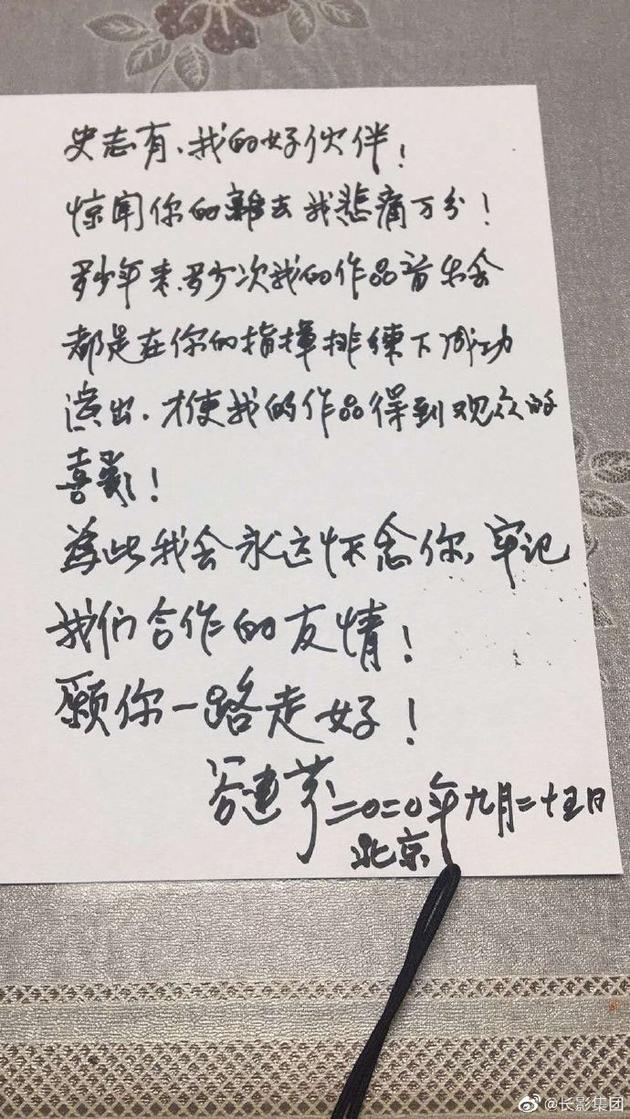 史志有、我的好伙伴！
惊闻你的離去我悲痛万分！
多少年来、多少次我的作品音乐会
都是在你的指挥排练下成功
演出、才使我的作品得到观众的
喜爱！
為此我会永远怀念你、牢记
我们合作的友情！
願你一路走好！
谷建芬 二〇二〇年九月二十五日
北京
@长影集团